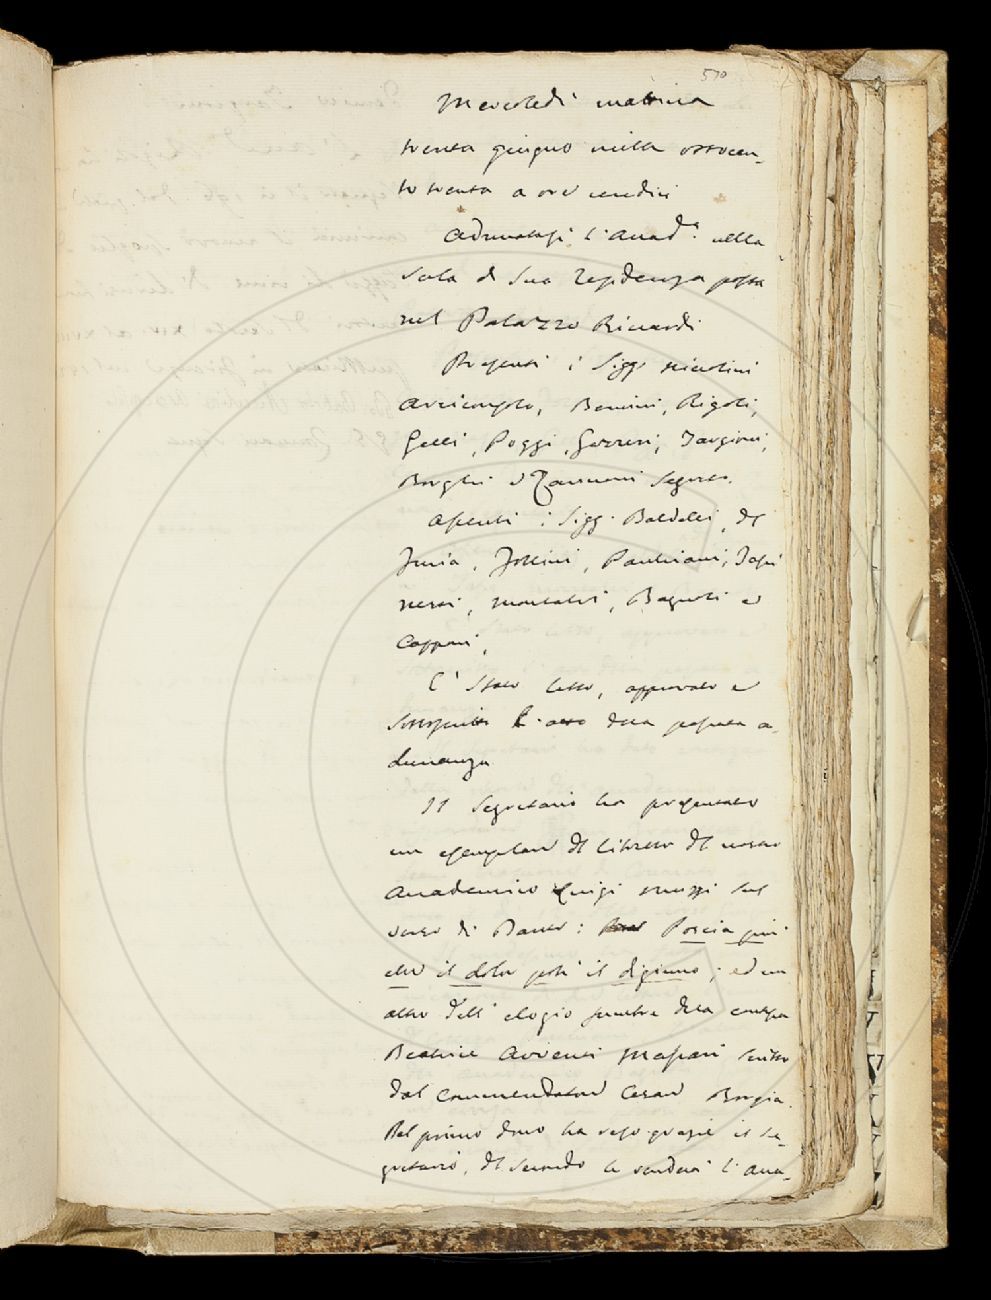 510
Mercoledì mattina
trenta giugno mille ottocen-
to trenta a ore undici
Adunatasi l'Accad.ª nella
Sala di Sua Residenza posta
nel Palazzo Riccardi
Presenti i Sigg. Niccolini
Arciconsolo, Bencini, Rigoli,
Gelli, Poggi, Gazzeri, Targioni,
Borghi e Zannoni Segret.
Assenti i Sigg. Baldelli, del
Furia, Follini, Panciani,
Nerei, Montalvi, Bagnoli e
Capponi,
E' stato letto, approvato e
sottoscritto l'atto della passata a-
dunanza
Il Segretario ha presentato
un esemplare del libretto del nostro
Accademico Luigi Muzzi sul
verso di Dante: Poscia più
che il dolor poté il digiuno; ed un
altro dell'elogio funebre della contessa
Beatrice Avventi Massari scritto
dal Commendatore Cesare Borgia.
Del primo dono ha reso grazie il Se-
gretario, del secondo le renderà l'Acca-